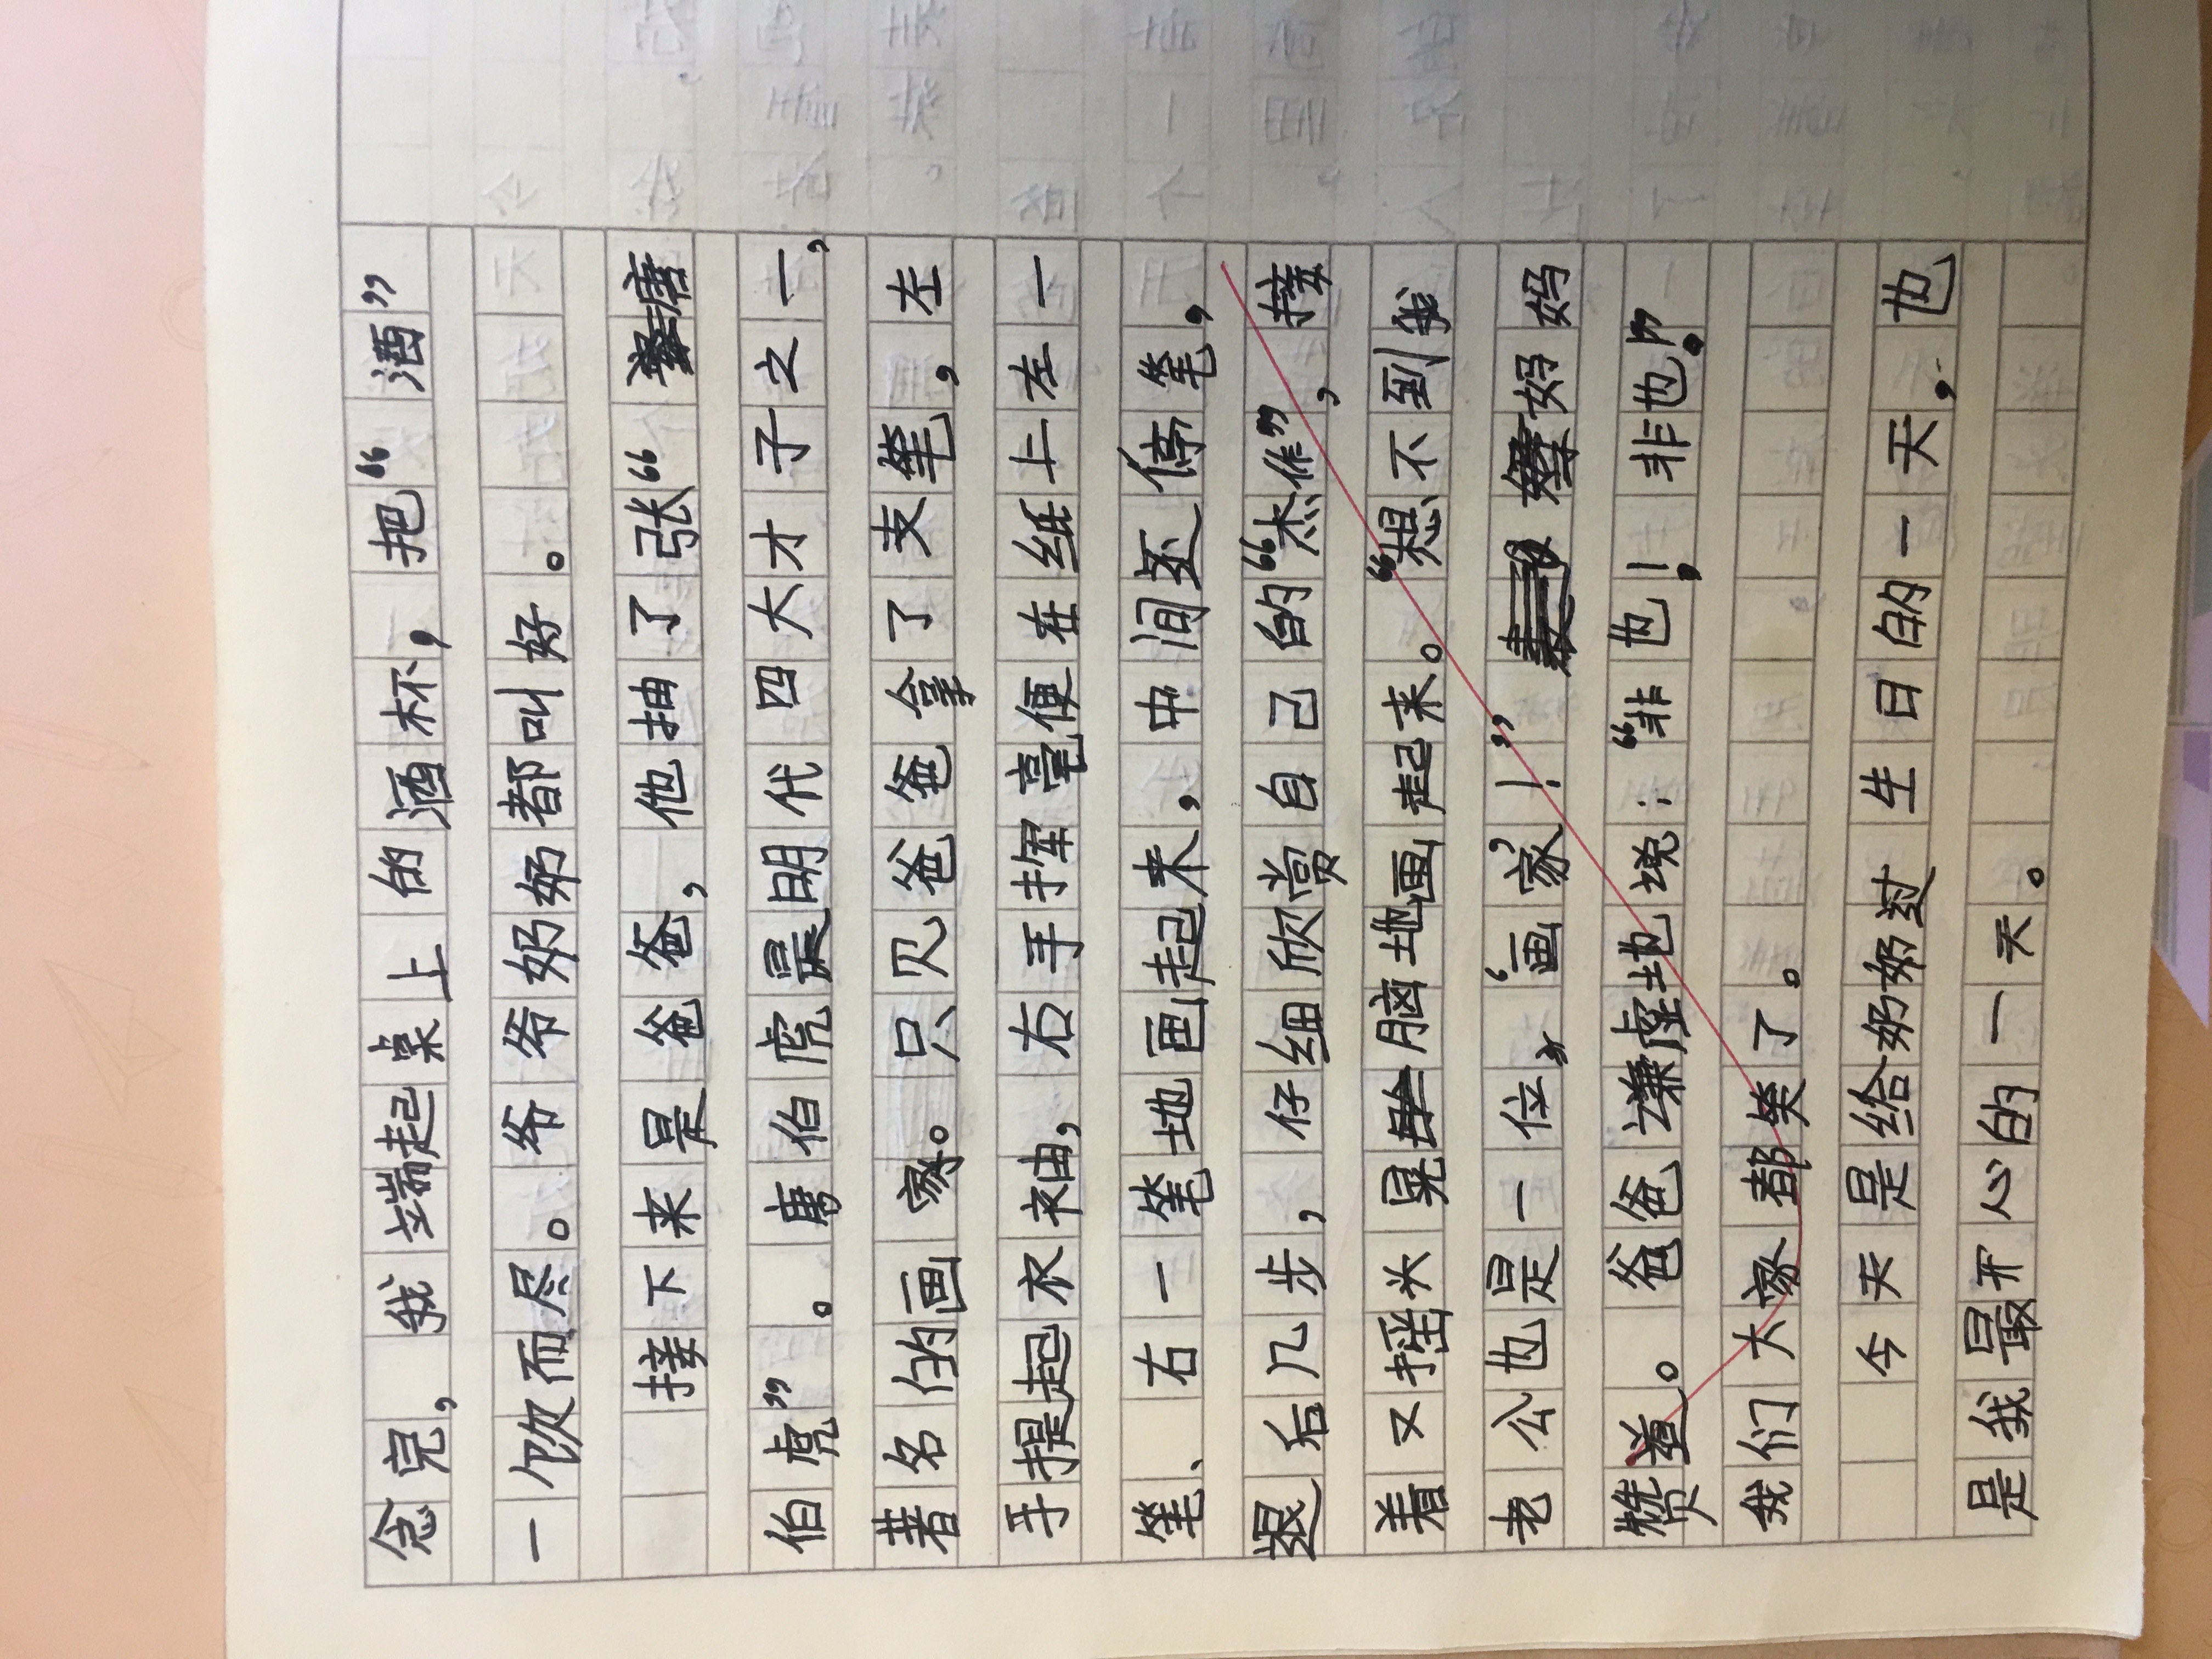 念完，我端起桌上的酒杯，把“酒”
一饮而尽。爷爷奶奶都叫好。
接下来是爸爸，他抽了张“唐
伯虎”。唐伯虎是明代四大才子之一，
著名的画家。只见爸爸拿了支笔，左
手提起衣袖，右手挥毫便在纸上左一
笔、右一笔地画起来，中间还停笔，
退后几步，仔细欣赏自己的“杰作”，接
着又摇头晃脑地画起来。“想不到我
老公也是一位‘画家’！”妈妈
赞道。爸爸谦虚地说：“非也！非也。”
我们大家都笑了。
今天是给奶奶过生日的一天，也
是我最开心的一天。